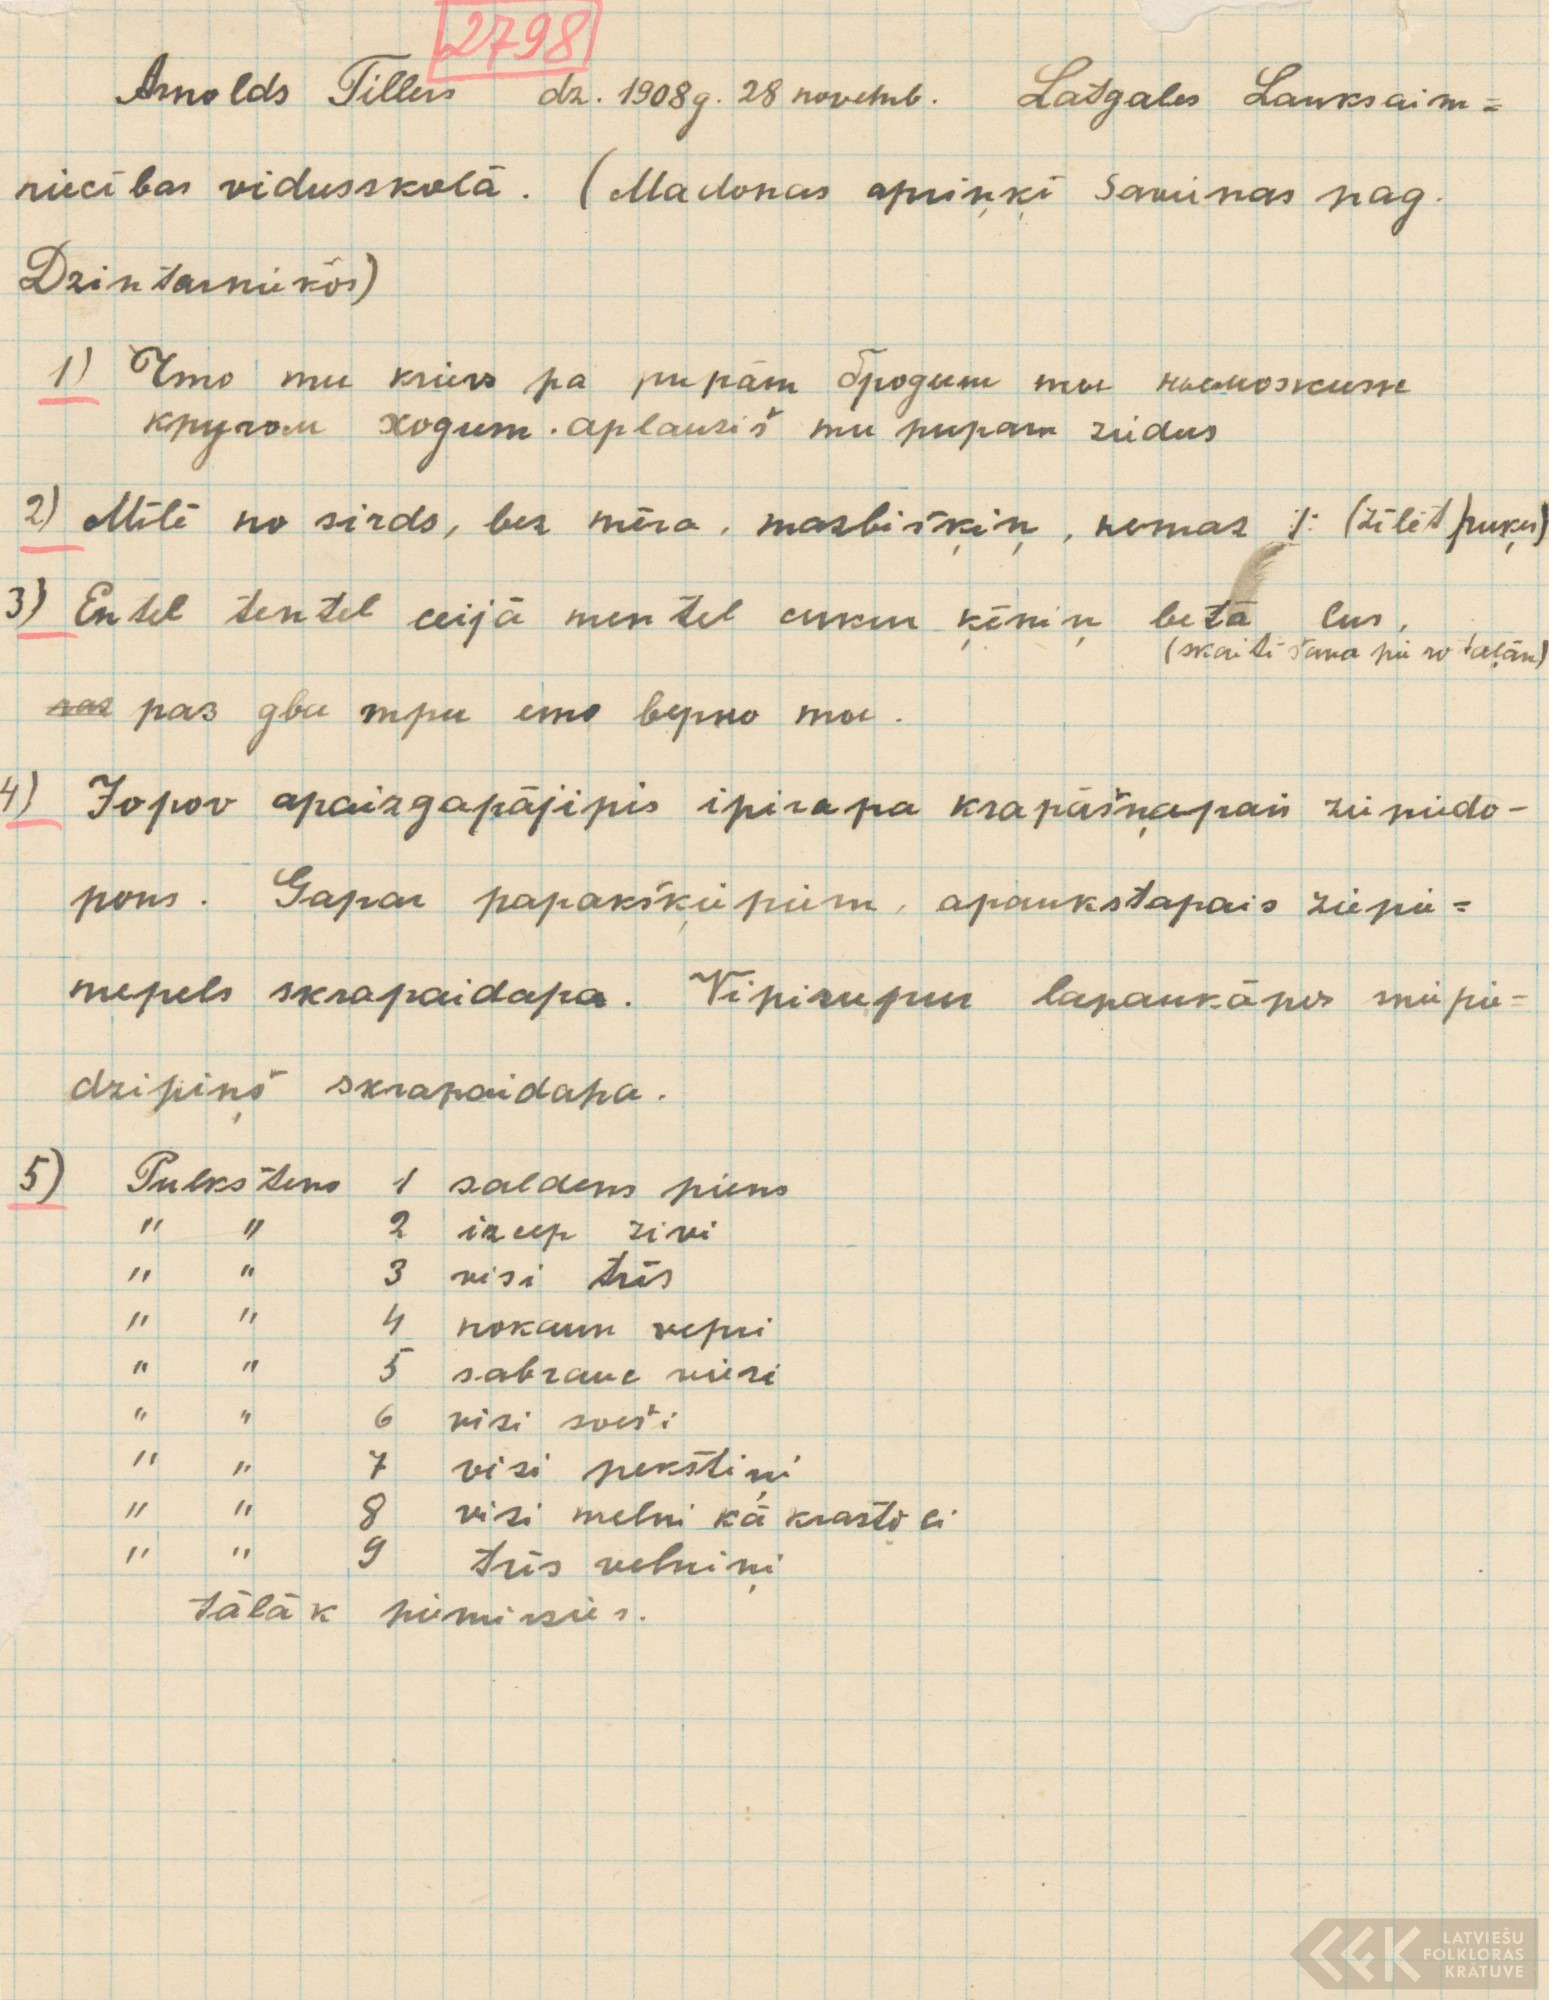 2798
Arnolds Tillers dz. 1908 g. 28 novemb. Latgales Lauksaim=
niecības vidusskolā. (Madonas apriņķī Savienas pag.
Dzintarniekos)
1) Что mu krievs pa pupām бродит ты
кругом ходит. aplauzīs mu pupam ziedus
2) Mīlē no sirds, bez mēra, mazbišķiņ, nemaz :/: (zīlēt puķes)
3) Entel tentel ceijā mentel cukur ķēniņ betā lus,
(skaitīšana pie rotaļām)
raz раз два три это верно ты.
4) Jopov apaizgapājipis ipirapa krapāšņapais ziepiedo-
pons. Gapar papakšķiepiem, apaukstapais ziepie=
mepels skrapaidapa. Vipirupur lapaukāpos sniepie=
dzipiņš skrapaidapa.
5) Pulkstens 1 saldens piens
" " 2 izcep zivi
" " 3 visi trīs
" " 4 nokaun vepri
" " 5 sabrauc viesi
" " 6 visi sveši
" " 7 visi pekstiņi
" " 8 visi melni kā krastiņi
" " 9 trīs velniņi
tālāk piemirsies.
LATVIEŠU
FOLKLORAS
KRĀTUVE